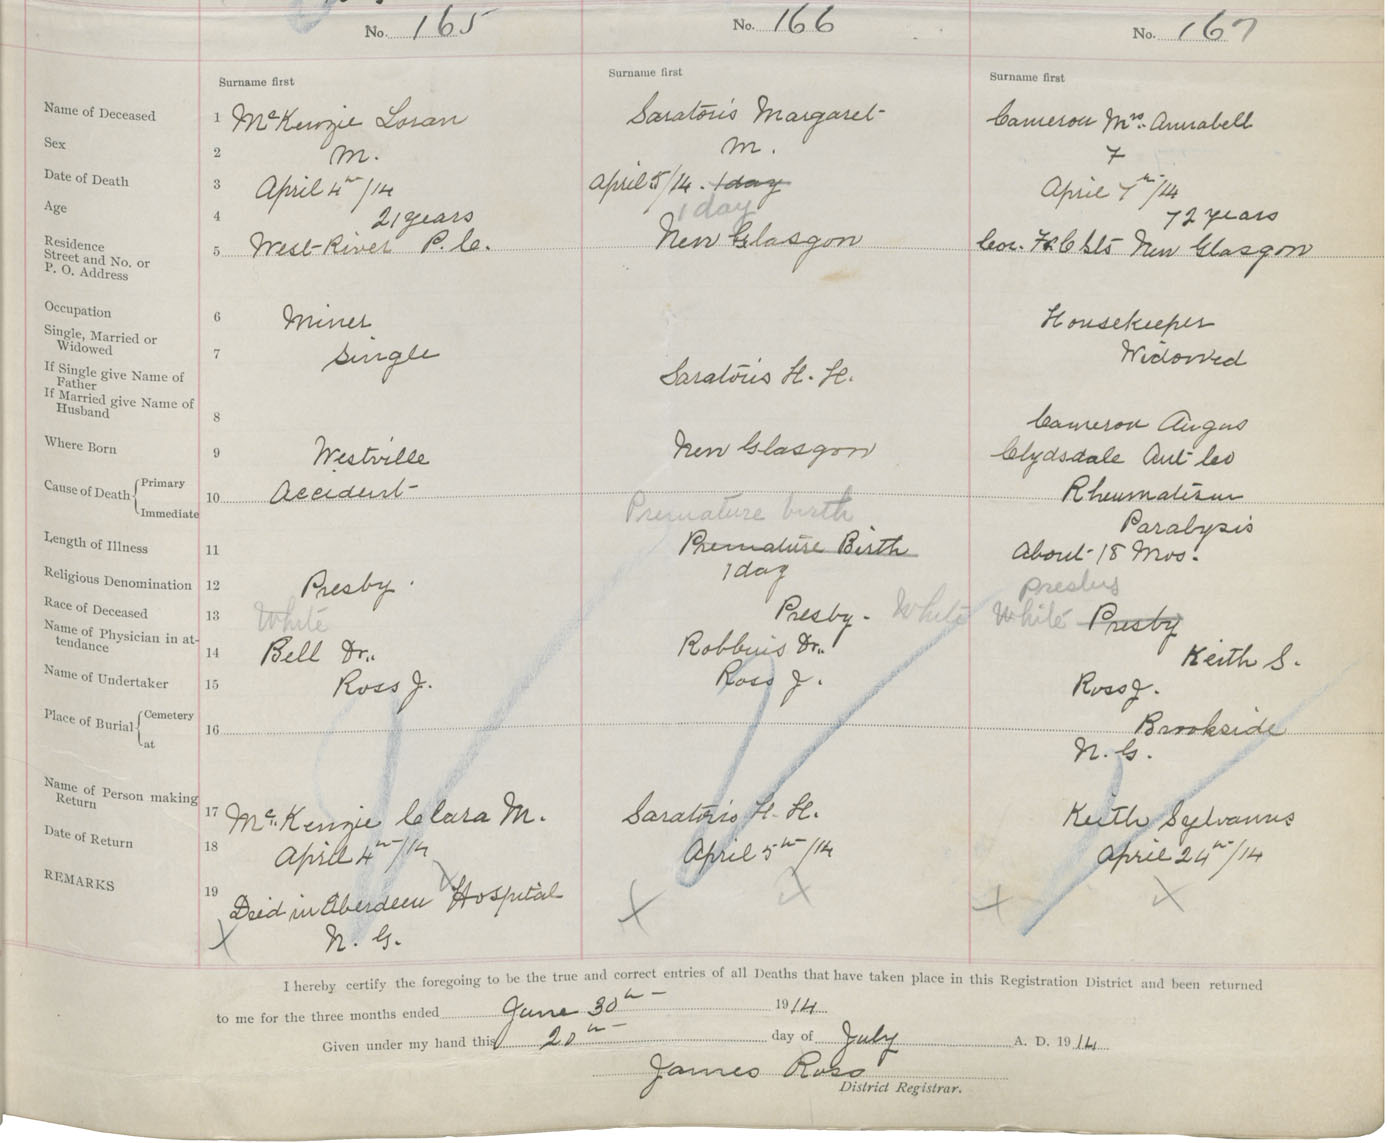 No. 165 No. 166 No. 167
Surname first Surname first Surname first
Name of Deceased 1 McKenzie Loran Saratoris Margaret Cameron Mrs. Annabell
Sex 2 M. M. F
Date of Death 3 April 4th/14 April 5/14. 1 day April 7th/14
Age 4 21 years 1 day 72 years
Residence Street and No. or P. O. Address 5 West River P. C. New Glasgow Cor. New Glasgow
Occupation 6 Miner Housekeeper
Single, Married or Widowed 7 Single Widowed
If Single give Name of Father Saratoris H. H.
If Married give Name of Husband 8 Cameron Angus
Where Born 9 Westville New Glasgow Clydsdale Ant Co
Cause of Death { Primary 10 Accident Premature birth Rheumatism
Immediate Premature Birth Paralysis
Length of Illness 11 1 day About 18 Mos.
Religious Denomination 12 Presby. Presby. Presby
Race of Deceased 13 White White White Presby
Name of Physician in attendance 14 Bell Dr. Robbins Dr. Keith S.
Name of Undertaker 15 Ross J. Ross J. Ross J.
Place of Burial { Cemetery 16 Brookside
at N. G.
Name of Person making Return 17 McKenzie Clara M. Saratoris H. H. Keith Sylvanus
Date of Return 18 April 4th/14 April 5th/14 April 24th/14
REMARKS 19 Deid in Aberdeen Hospital
N. G.
I hereby certify the foregoing to be the true and correct entries of all Deaths that have taken place in this Registration District and been returned
to me for the three months ended June 30th 1914
Given under my hand this 20th day of July A. D. 1914
James Ross
District Registrar.